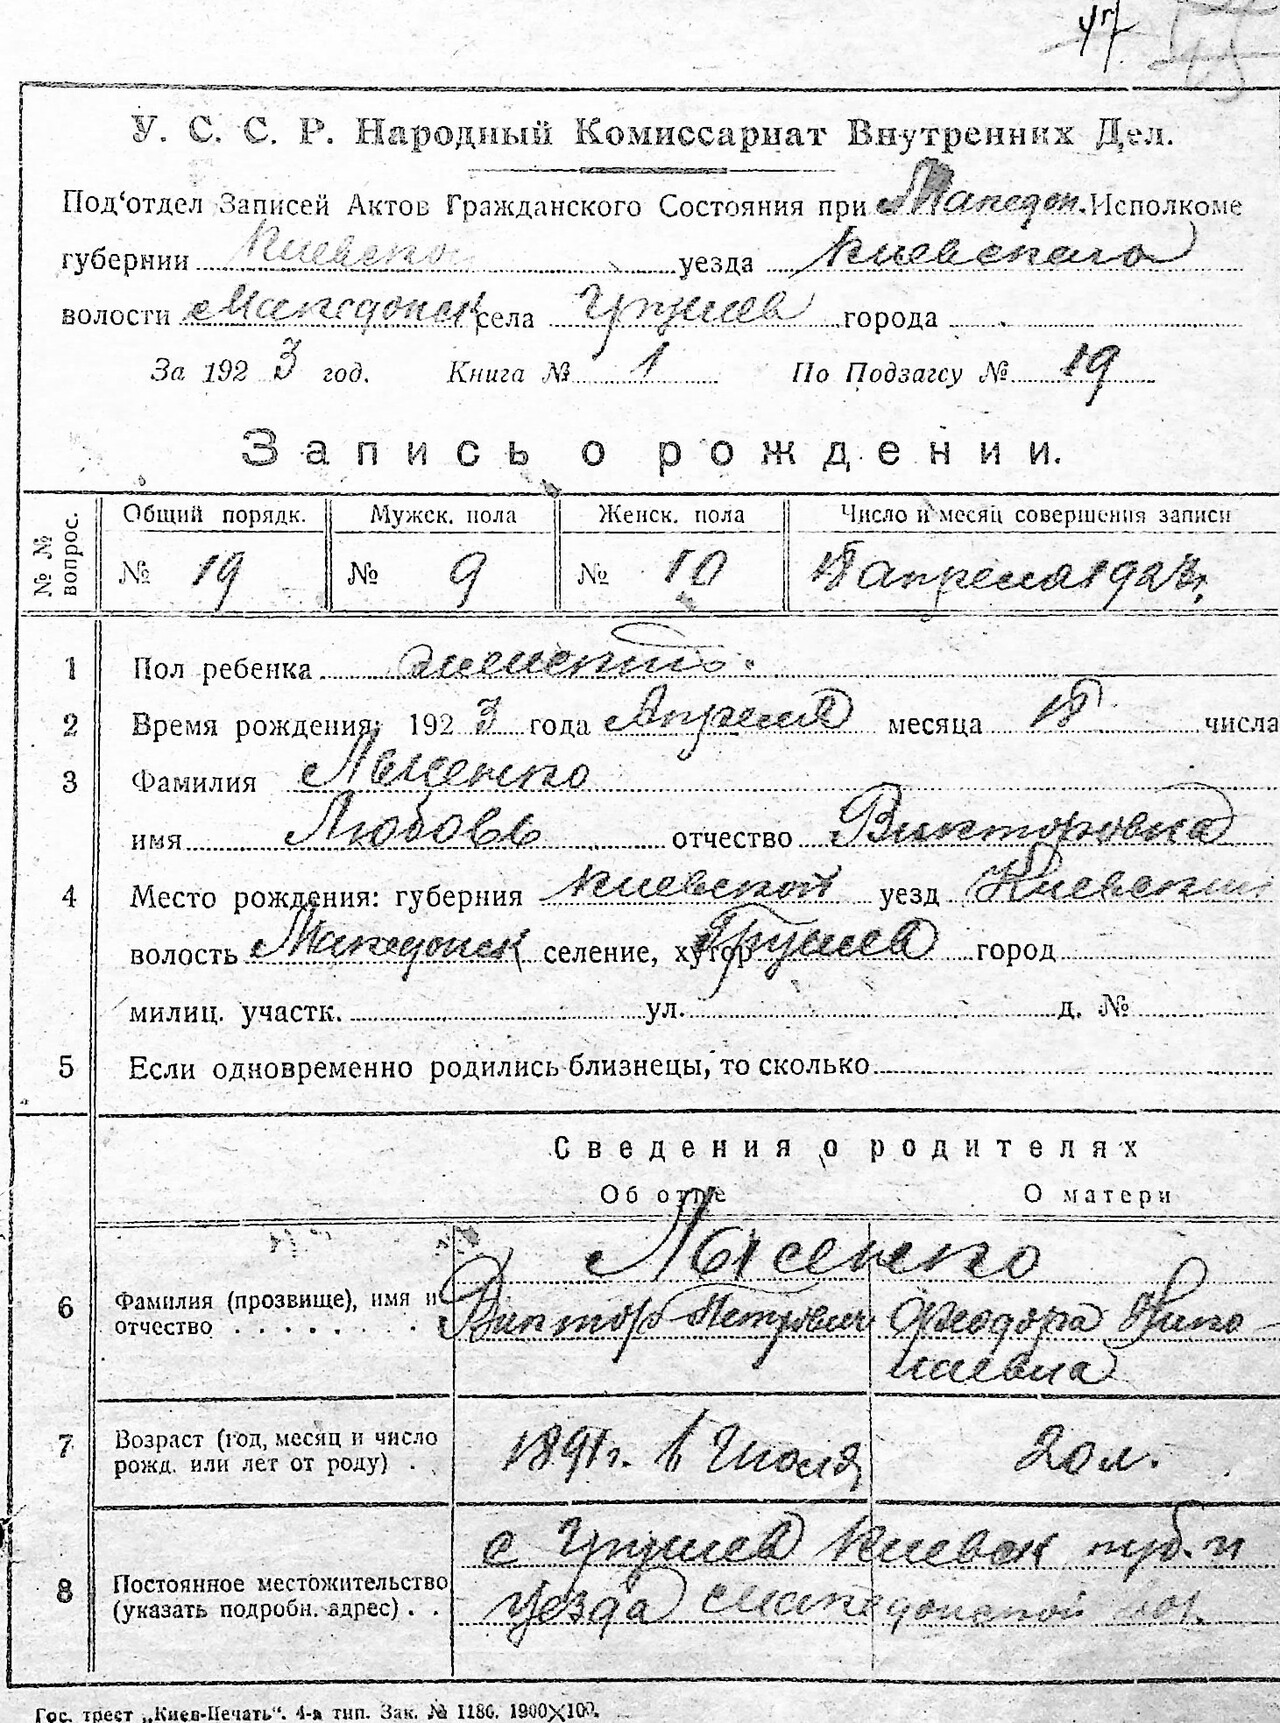 47
У. С. С. Р. Народный Комиссариат Внутренних Дел.
Под‘отдел Записей Актов Гражданского Состояния при Македон. Исполкоме
губернии Киевской уезда Киевского
волости Македонск села Грушев города
За 1923 год. Книга № 1 По Подзагсу № 19
Запись о рождении.
№ № вопрос.
Общий порядк. Мужск. пола Женск. пола Число и месяц совершения записи
№ 19 № 9 № 10 18 апреля 1923 г.
1 Пол ребенка женский.
2 Время рождения; 1923 года Апреля месяца 18 числа
3 Фамилия Лысенко
имя Любовь отчество Викторовна
4 Место рождения: губерния Киевской уезд Киевский
волость Македонск селение, хутор Грушев город
милиц. участк. ул. д. №
5 Если одновременно родились близнецы, то сколько
Сведения о родителях
Об отце О матери
Лысенко
6 Фамилия (прозвище), имя и отчество Виктор Петрович Феодора Николаевна
7 Возраст (год, месяц и число рожд. или лет от роду) 1891 г. Июля 20 л.
8 Постоянное местожительство (указать подробн. адрес) с Грушев Киевск губ. и
уезда Македонской вол.
Гос. трест „Киев-Печать“. 4-я тип. Зак. № 1186. 1900×100.